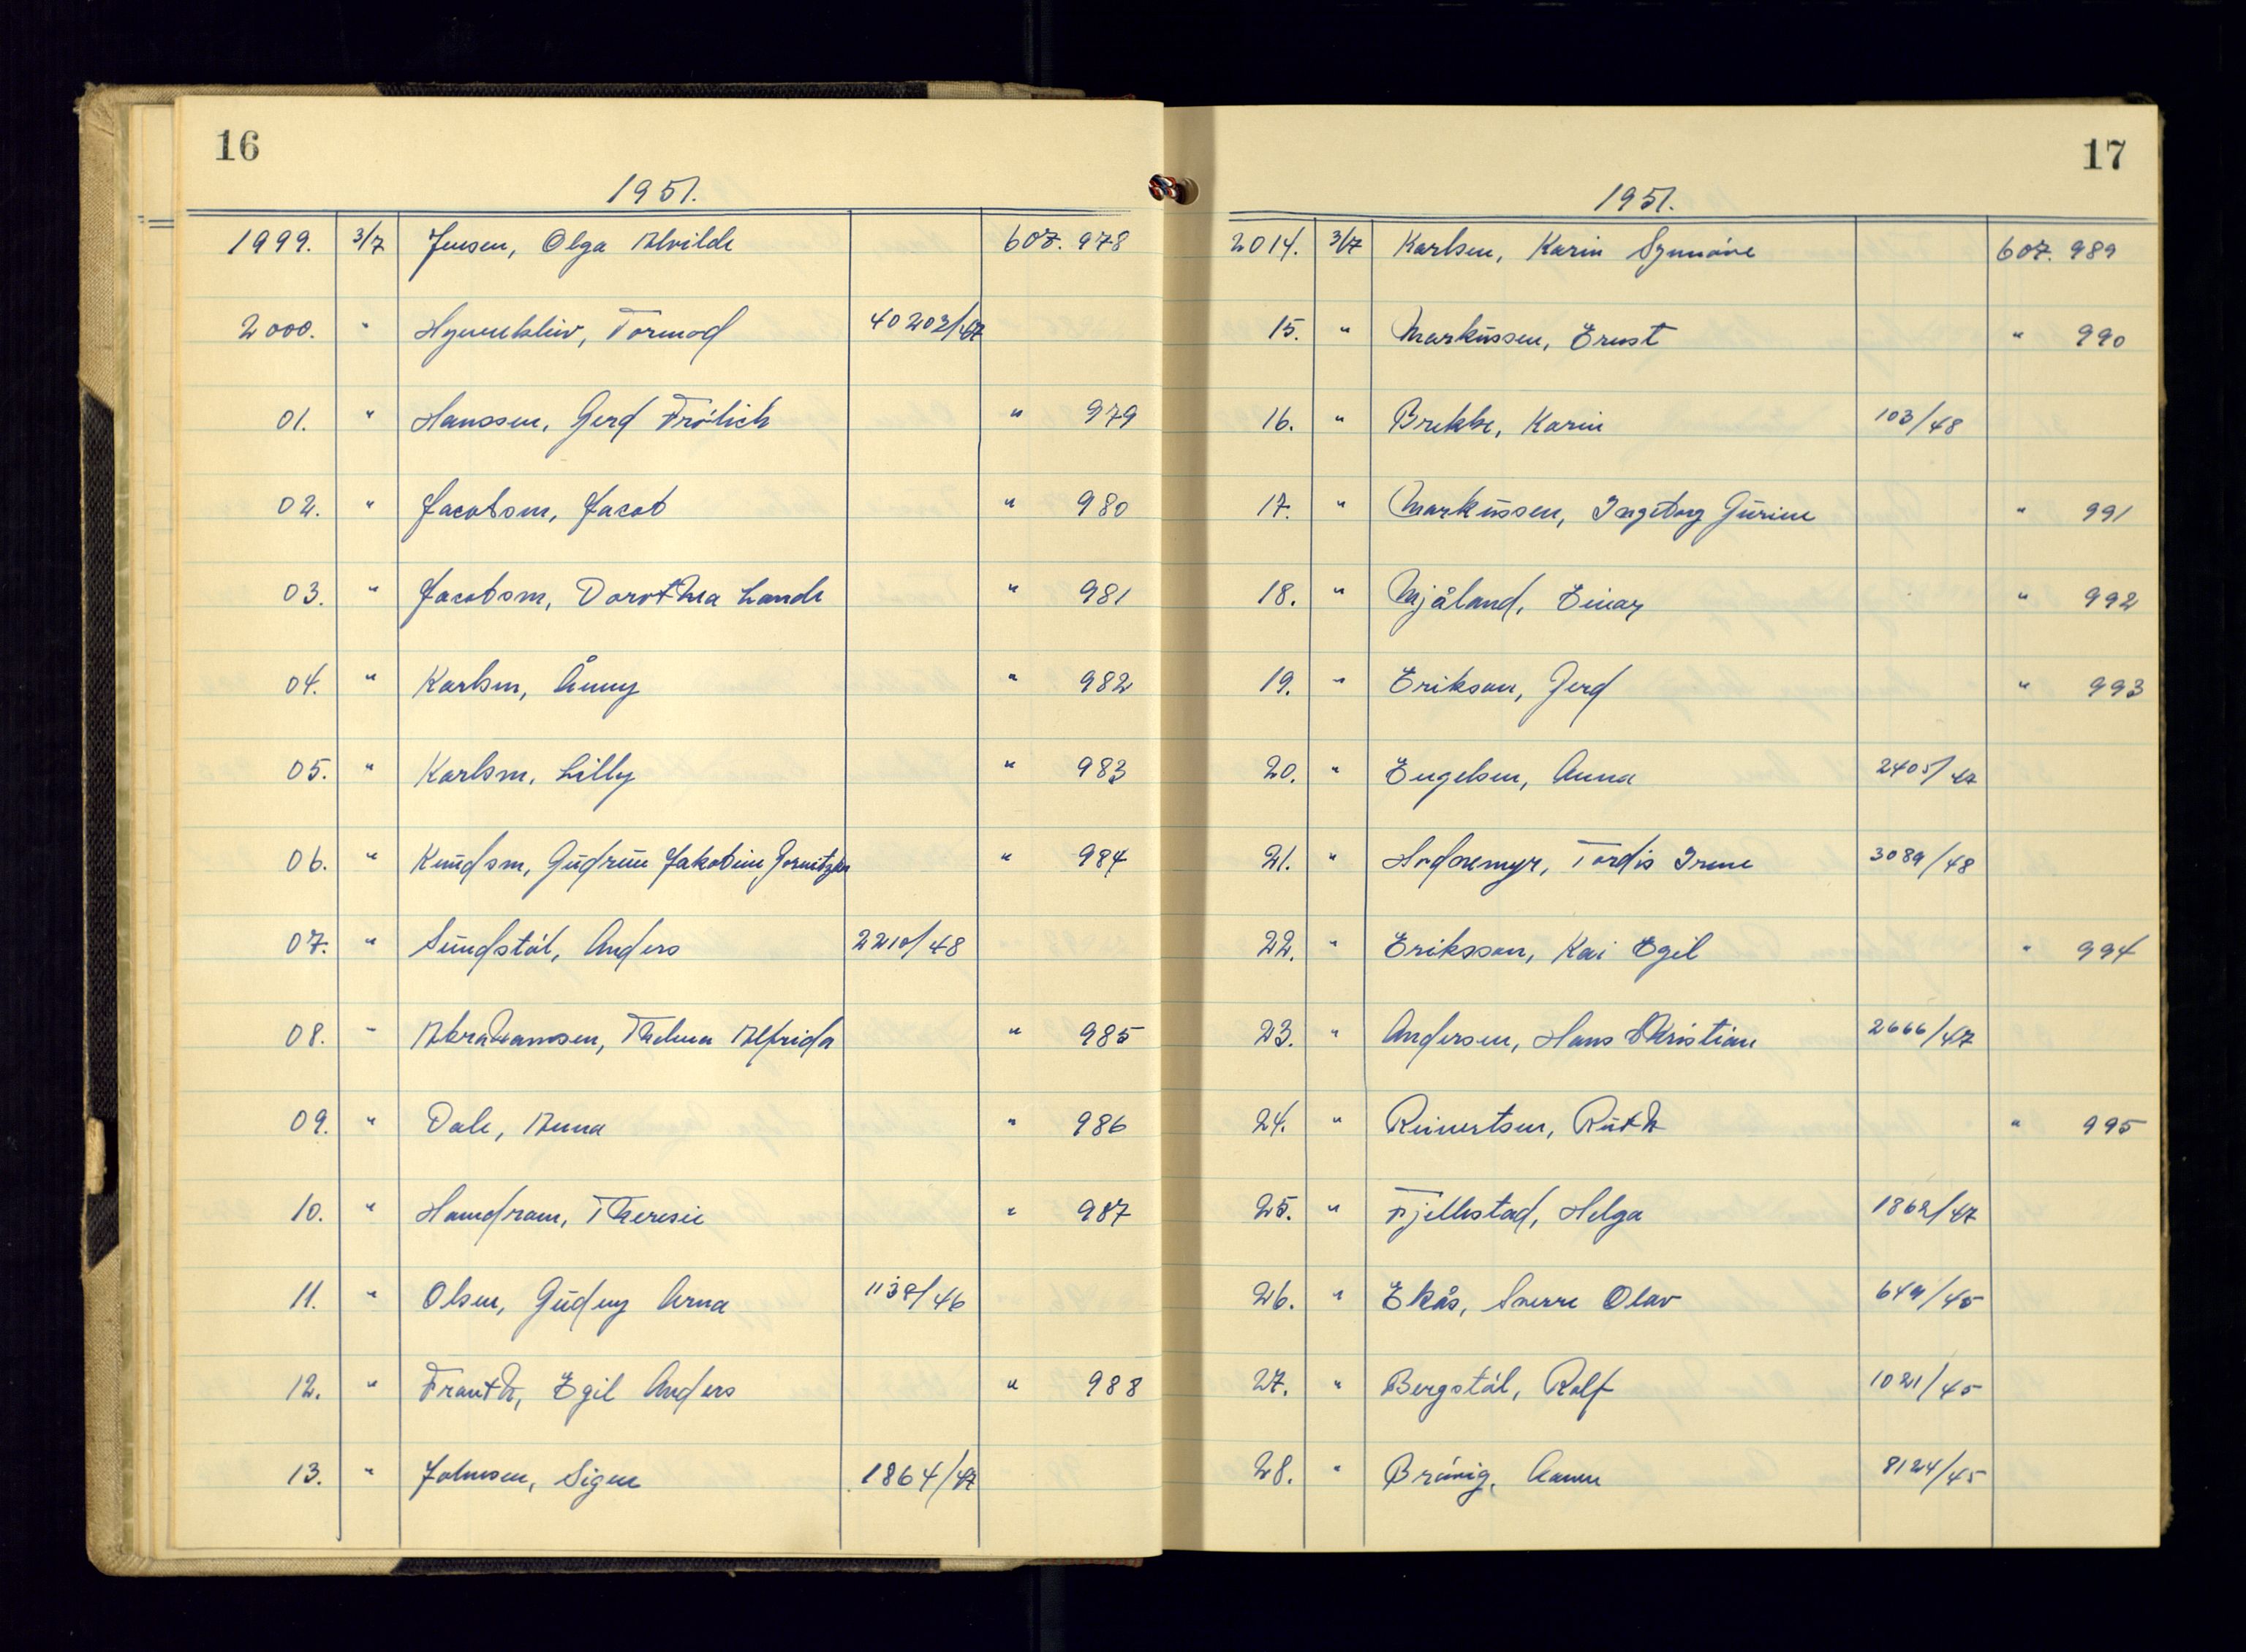 16
1951.
1999. 3/7 Jensen, Olga Alvilde 607. 978
2000. " Tormod 40202/47
01. " Hanssen, Gerd Frølich " 979
02. " Jacobsen, Jacob " 980
03. " Jacobsen, Dorothea Lande " 981
04. " Karlsen, Ånny " 982
05. " Karlsen, Lilly " 983
06. " Knudsen, Gudrun Jakobine " 984
07. " Sundstøl, Anders 2210/48
08. " Abrahamsen, Thelma Alfrida " 985
09. " Dale, Anna " 986
10. " Handram, Theresie " 987
11. " Olsen, Gudny Arna 1139/46
12. " Franth, Egil Anders " 988
13. " Johnsen, Signe 1864/47
17
1951.
2014. 3/7 Karlsen, Karin Synnøve 607. 989
15. " Markussen, Ernst " 990
16. " Brekke, Karin 103/48
17. " Markussen, Ingeborg Gurine " 991
18. " Mjåland, Einar " 992
19. " Erikson, Gerd " 993
20. " Engelsen, Anna 2405/47
21. " Hodnemyr, Tordis Irene 3089/48
22. " Eriksson, Kai Egil " 994
23. " Andersen, Hans Kristian 2666/47
24. " Reinertsen, Ruth " 995
25. " Fjellestad, Helga 1862/47
26. " Ekås, Sverre Olav 649/45
27. " Bergstøl, Rolf 1021/45
28. " Brøvig, Aanne 8124/45